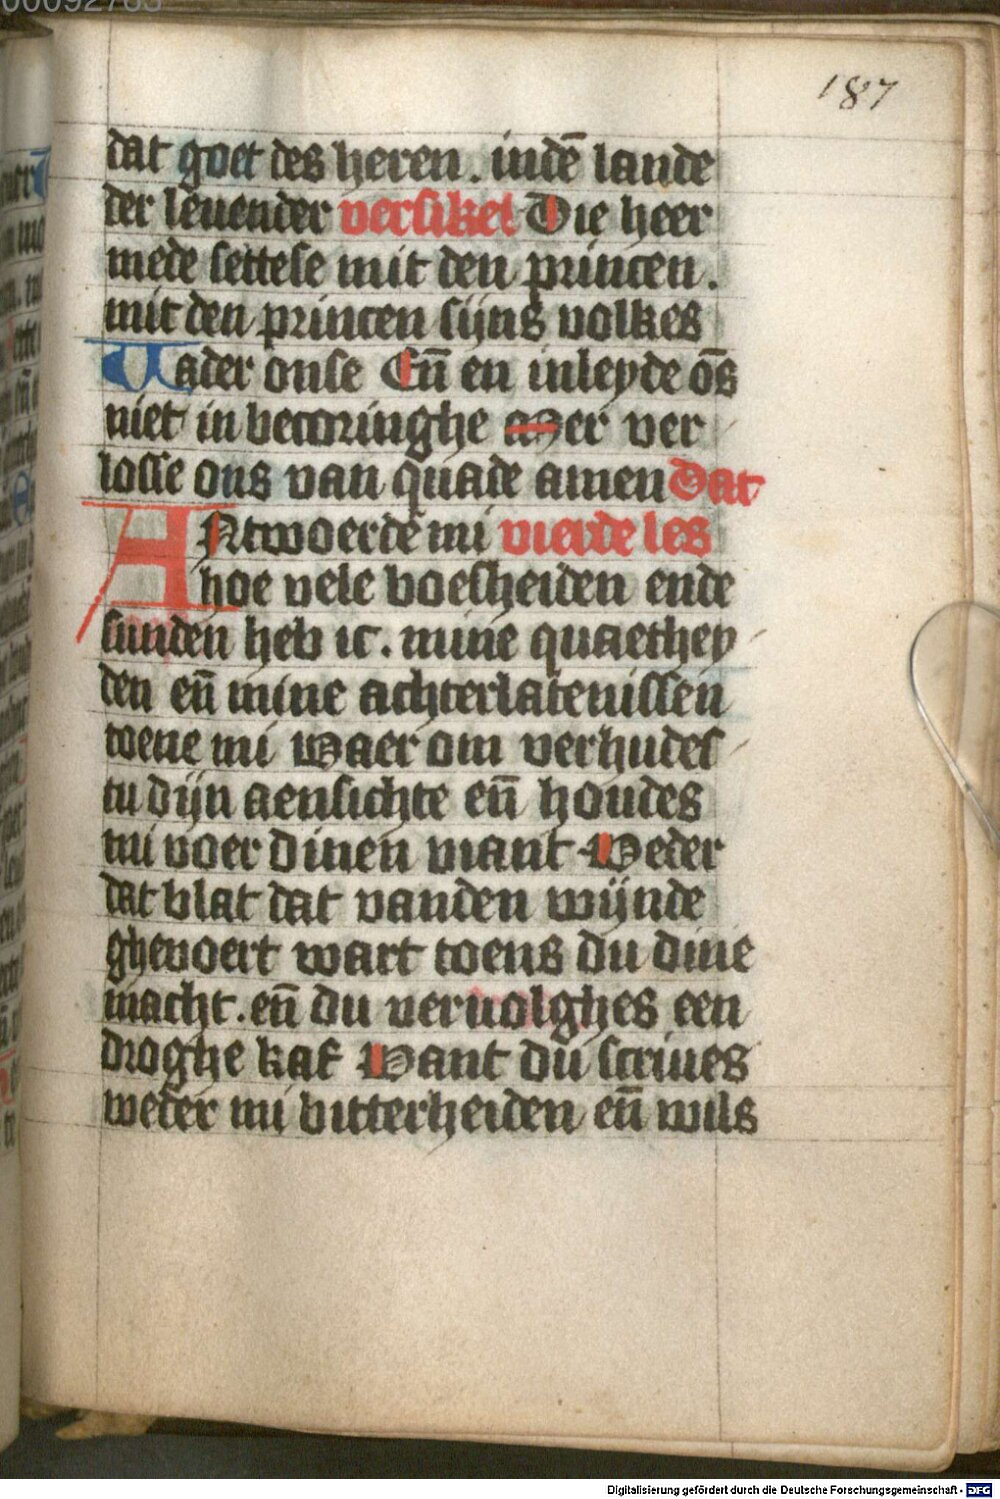 187
dat goet des heren. indē lande
der leuender versikel Die heer
mede settese mit den princen.
mit den princen sijns volkes
Vader onse Eñ en inleyde ōs
niet in becoringhe Mer ver
losse ons van quade amen Dat
ANtwoerde mi vierde les
hoe vele boesheiden ende
sunden heb ic. mine quaethey
den eñ mine achterlatenissen
toene mi Waer om verhudes
tu dijn aensichte eñ houdes
mi voer dinen viant Weder
dat blat dat vanden wijnde
gheuoert wart toens du dine
macht. eñ du veruolghes een
droghe kaf Want du scriues
weder mi bitterheiden eñ wils
Digitalisierung gefördert durch die Deutsche Forschungsgemeinschaft - DFG